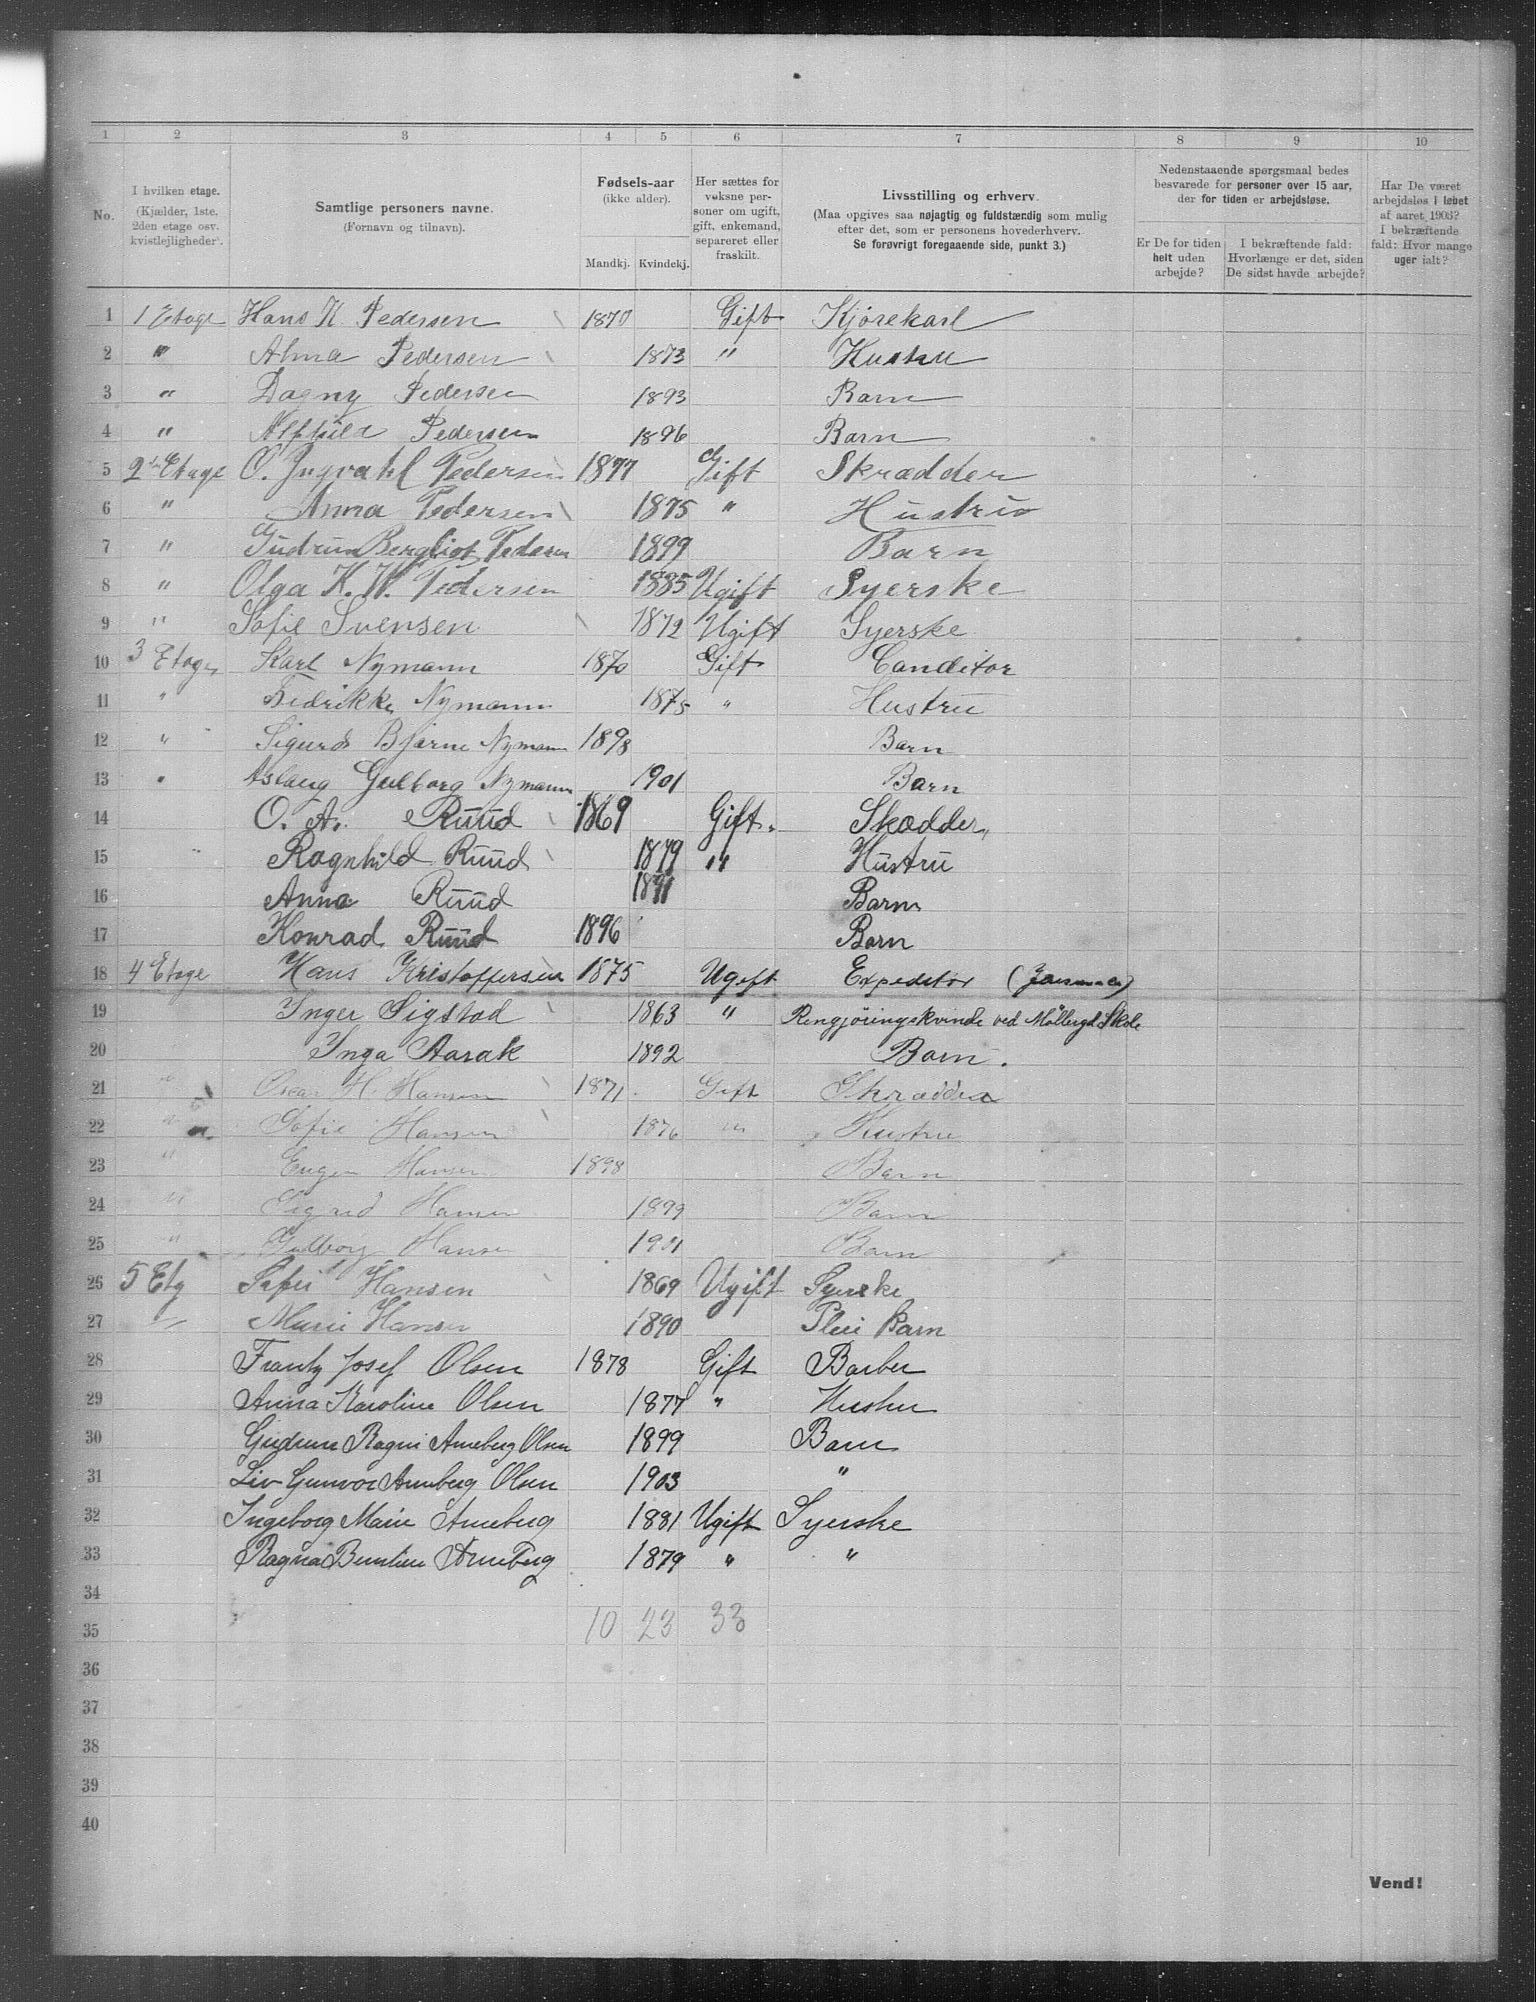 1 2 3 4 5 6 7 8 9 10
No.
I hvilken etage. (Kjælder, 1ste, 2den etage osv. kvistleiligheder).
Samtlige personers navne. (Fornavn og tilnavn).
Fødsels-aar (ikke alder).
Mandkj. Kvindekj.
Her sættes for voksne personer om ugift, gift, enkemand, separeret eller fraskilt.
Livsstilling og erhverv.
(Maa opgives saa nøjagtig og fuldstændig som mulig efter det, som er personens hovederhverv.
Se forøvrigt foregaaende side, punkt 3.)
Nedenstaaende spørgsmaal bedes besvarede for personer over 15 aar, der for tiden er arbejdsløse.
Er De for tiden helt uden arbejde?
I bekræftende fald: Hvorlænge er det, siden De sidst havde arbejde?
Har De været arbejdsløs i løbet af aaret 1903? I bekræftende fald: Hvor mange uger ialt?
1 1 Etage Hans K. Pedersen 1870 Gift Kjørekarl
2 " Alma Pedersen 1873 " Hustru
3 " Dagny Pedersen 1893 Barn
4 " Alfhild Pedersen 1896 Barn
5 2 Etage O. Ingvald Pedersen 1877 Gift Skrædder
6 " Anna Pedersen 1875 " Hustru
7 " Gudrun Bergliot Pedersen 1899 Barn
8 " Olga K. W. Pedersen 1885 Ugift Syerske
9 " Sofie Svensen 1872 Ugift Syerske
10 3 Etage Karl Nymann 1870 Gift Conditor
11 " Fedrikke Nymann 1875 " Hustru
12 " Sigurd Bjarne Nymann 1898 Barn
13 " Aslaug Gulborg Nymann 1901 Barn
14 O. A. Ruud 1869 Gift. Skædder
15 " Ragnhild Ruud 1879 " Hustru
16 Anna Ruud 1891 Barn
17 Konrad Ruud 1896 Barn
18 4 Etage Hans Kristoffersen 1875 Ugift Expeditør
19 Inger Sigstad 1863 " Rengjøringskvinde ved Møllergd Skole
20 Inga Aarak 1892 Barn.
21 " Oscar H. Hansen 1871 Gift Skrædder
22 " Sofie Hansen 1876 " Hustru
23 " Eugen Hansen 1898 Barn
24 " Sigrid Hansen 1899 Barn
25 " Gulborg Hansen 1901 Barn
26 5 Etg Sofie Hansen 1869 Ugift Syerske
27 " Marie Hansen 1890 Pleie Barn
28 Frantz Josef Olsen 1878 Gift Barber
29 Anna Karoline Olsen 1877 " Hustru
30 Gudrun Ragni Arneberg Olsen 1899 Barn
31 Liv Gunvor Arneberg Olsen 1903 "
32 Ingeborg Marie Arneberg 1881 Ugift Syerske
33 Ragna Arneberg 1879 " "
34
35 10 23 33
36
37
38
39
40
Vend!